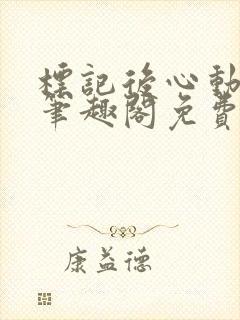 標記後心動
筆趣閣免費
康益德